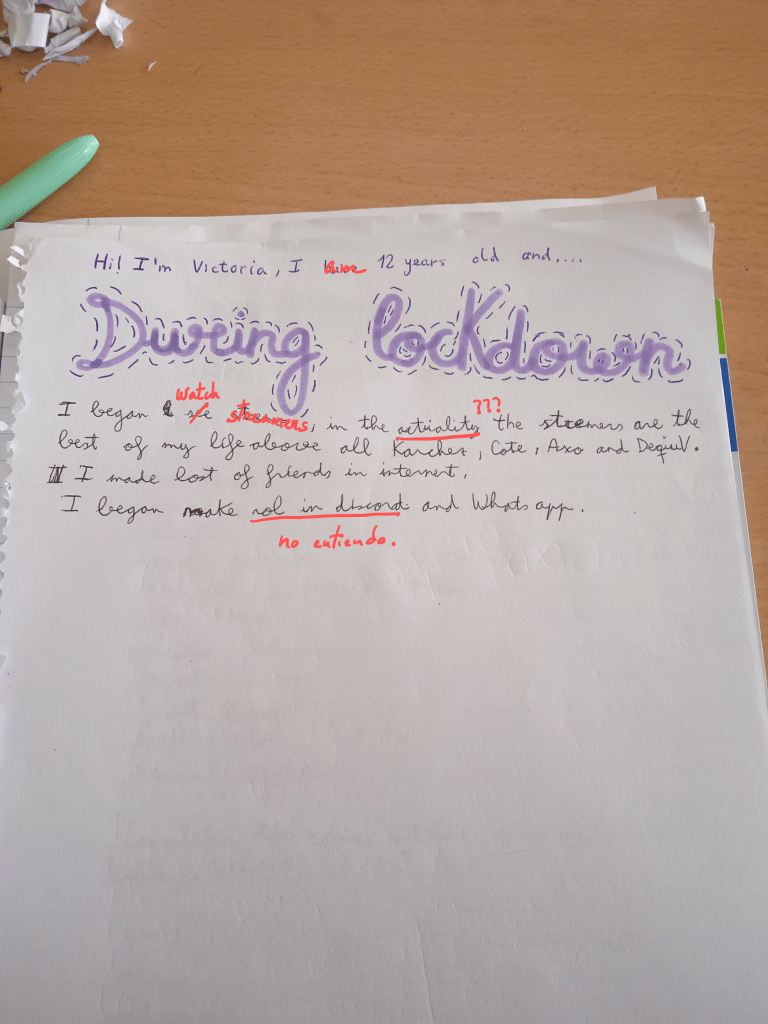 Hi! I'm Victoria, I have 12 years old and....
During lockdown
watch ???
I began see streamers, in the actuality the stremers are the
best of my life above all Karchez, Cote, Axo and DeqiuV.
I made lost of friends in internet.
I began make rol in discord and Whats app.
no entiendo.